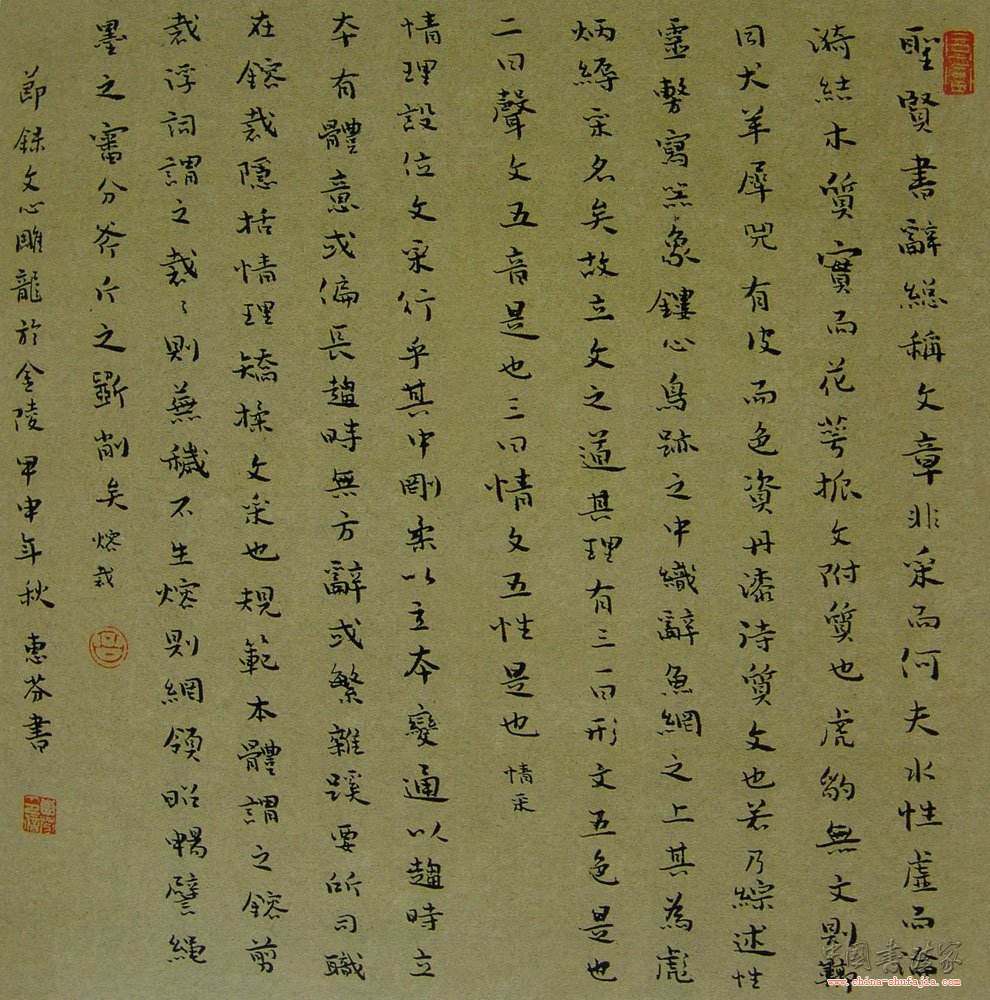 聖賢書辭總稱文章非采而何夫水性虛而淪
漪結木質實而花萼振文附質也虎豹無文則鞹
同犬羊犀兕有皮而色資丹漆待質文也若乃綜述性
靈敷寫器象鏤心鳥跡之中織辭魚網之上其為彪
炳縟采名矣故立文之道其理有三一曰形文五色是也
二曰聲文五音是也三曰情文五性是也 情采
情理設位文采行乎其中剛柔以立本變通以趨時立
本有體意或偏長趨時無方辭或繁雜蹊要所司職
在鎔裁隱括情理矯揉文采也規範本體謂之鎔剪
裁浮詞謂之裁〻則蕪穢不生熔則網領昭暢譬繩
墨之審分斧斤之斲削矣 熔裁
節錄文心雕龍於金陵甲申年秋 惠芬書
中国书法家
www.china-shufajia.com